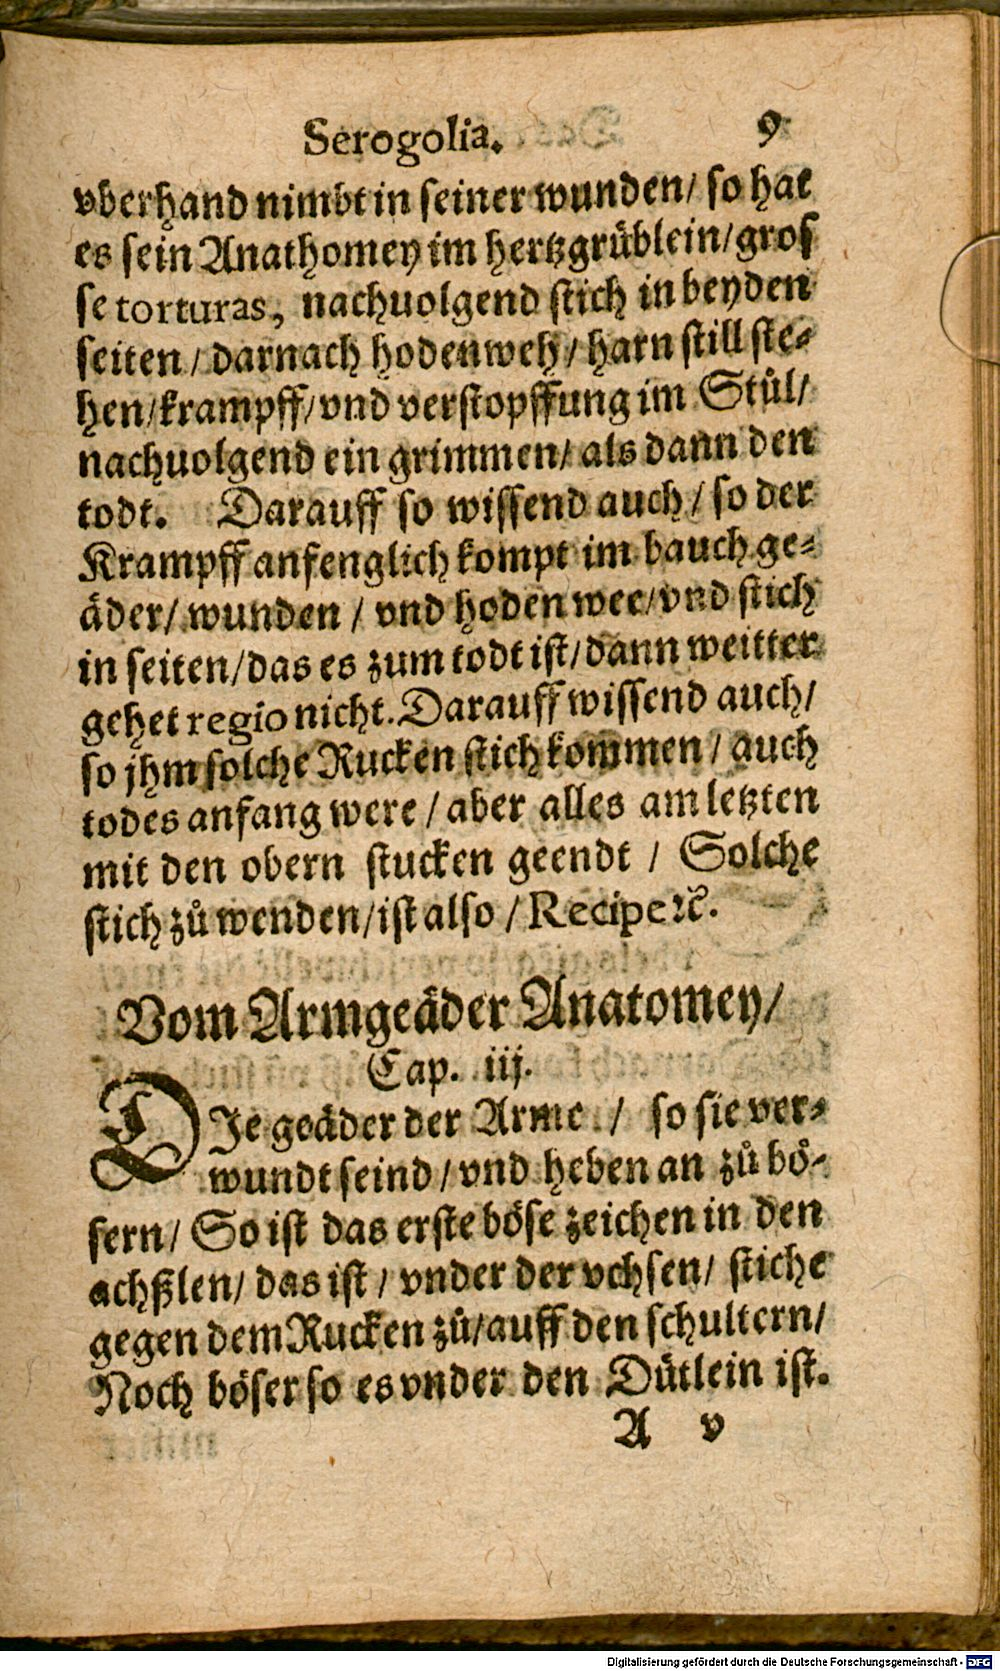 Serogolia. 9
vberhand nimbt in seiner wunden/ so hat
es sein Anathomey im hertzgrüblein/gros
se torturas, nachuolgend stich in beyden
seiten / darnach hodenweh / harn still ste-
hen/krampff/vnd verstopffung im Stůl/
nachuolgend ein grimmen/ als dann den
todt. Darauff so wissend auch / so der
Krampff anfenglich kompt im bauch ge-
äder/ wunden / vnd hoden wee/vnd stich
in seiten/das es zum todt ist/dann weitter
gehet regio nicht. Darauff wissend auch/
so jhm solche Rucken stich kommen / auch
todes anfang were / aber alles am letzten
mit den obern stucken geendt / Solche
stich zů wenden/ist also / Recipe ꝛc̃.
Vom Armgeäder Anatomey/
Cap. iij.
DIe geäder der Arme / so sie ver-
wundt seind / vnd heben an zů bö-
sern/ So ist das erste böse zeichen in den
achßlen/ das ist / vnder der vchsen/ stiche
gegen dem Rucken zů/auff den schultern/
Noch böser so es vnder den Dütlein ist.
A v
Digitalisierung gefördert durch die Deutsche Forschungsgemeinschaft - DFG